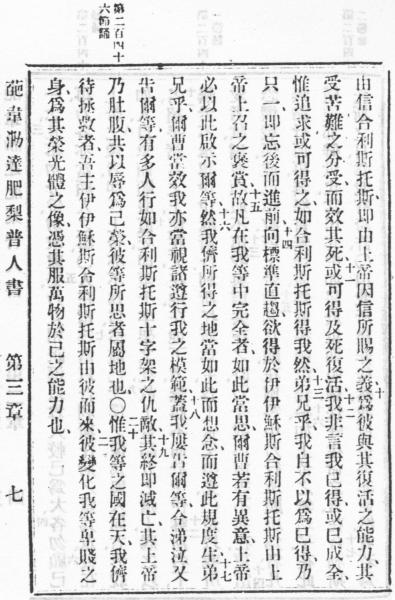 第二百四十
六節誦
由信合利斯托斯卽由上帝因信所賜之義爲彼與其復活之能力、其
受苦難之分受而效其死或可得及死復活我非言我已得或已成全、
惟追求或可得之如合利斯托斯得我然弟兄乎我自不以爲已得乃
只一卽忘後而進前向標準直趨欲得於伊伊穌斯合利斯托斯由上
帝上召之褒賞故凡在我等中完全者如此當思爾曹若有異意上帝
必以此啟示爾等然我儕所得之地當如此而想念而遵此規度生弟
兄乎爾曹當效我亦當視諸遵行我之模範蓋我屢告爾等今涕泣又
告爾等有多人行如合利斯托斯十字架之仇敵其終卽滅亡其上帝
乃肚腹共以辱爲己榮彼等所思者屬地也〇惟我等之國在天我儕
待拯救者吾主伊伊穌斯合利斯托斯由彼而來彼變化我等卑賤之
身爲其榮光體之像憑其服萬物於己之能力也
葩韋泐達肥梨普人書　第三章　七
十
十一
十二
十三
十四
十五
十六
十七
十八
十九
二十
二一